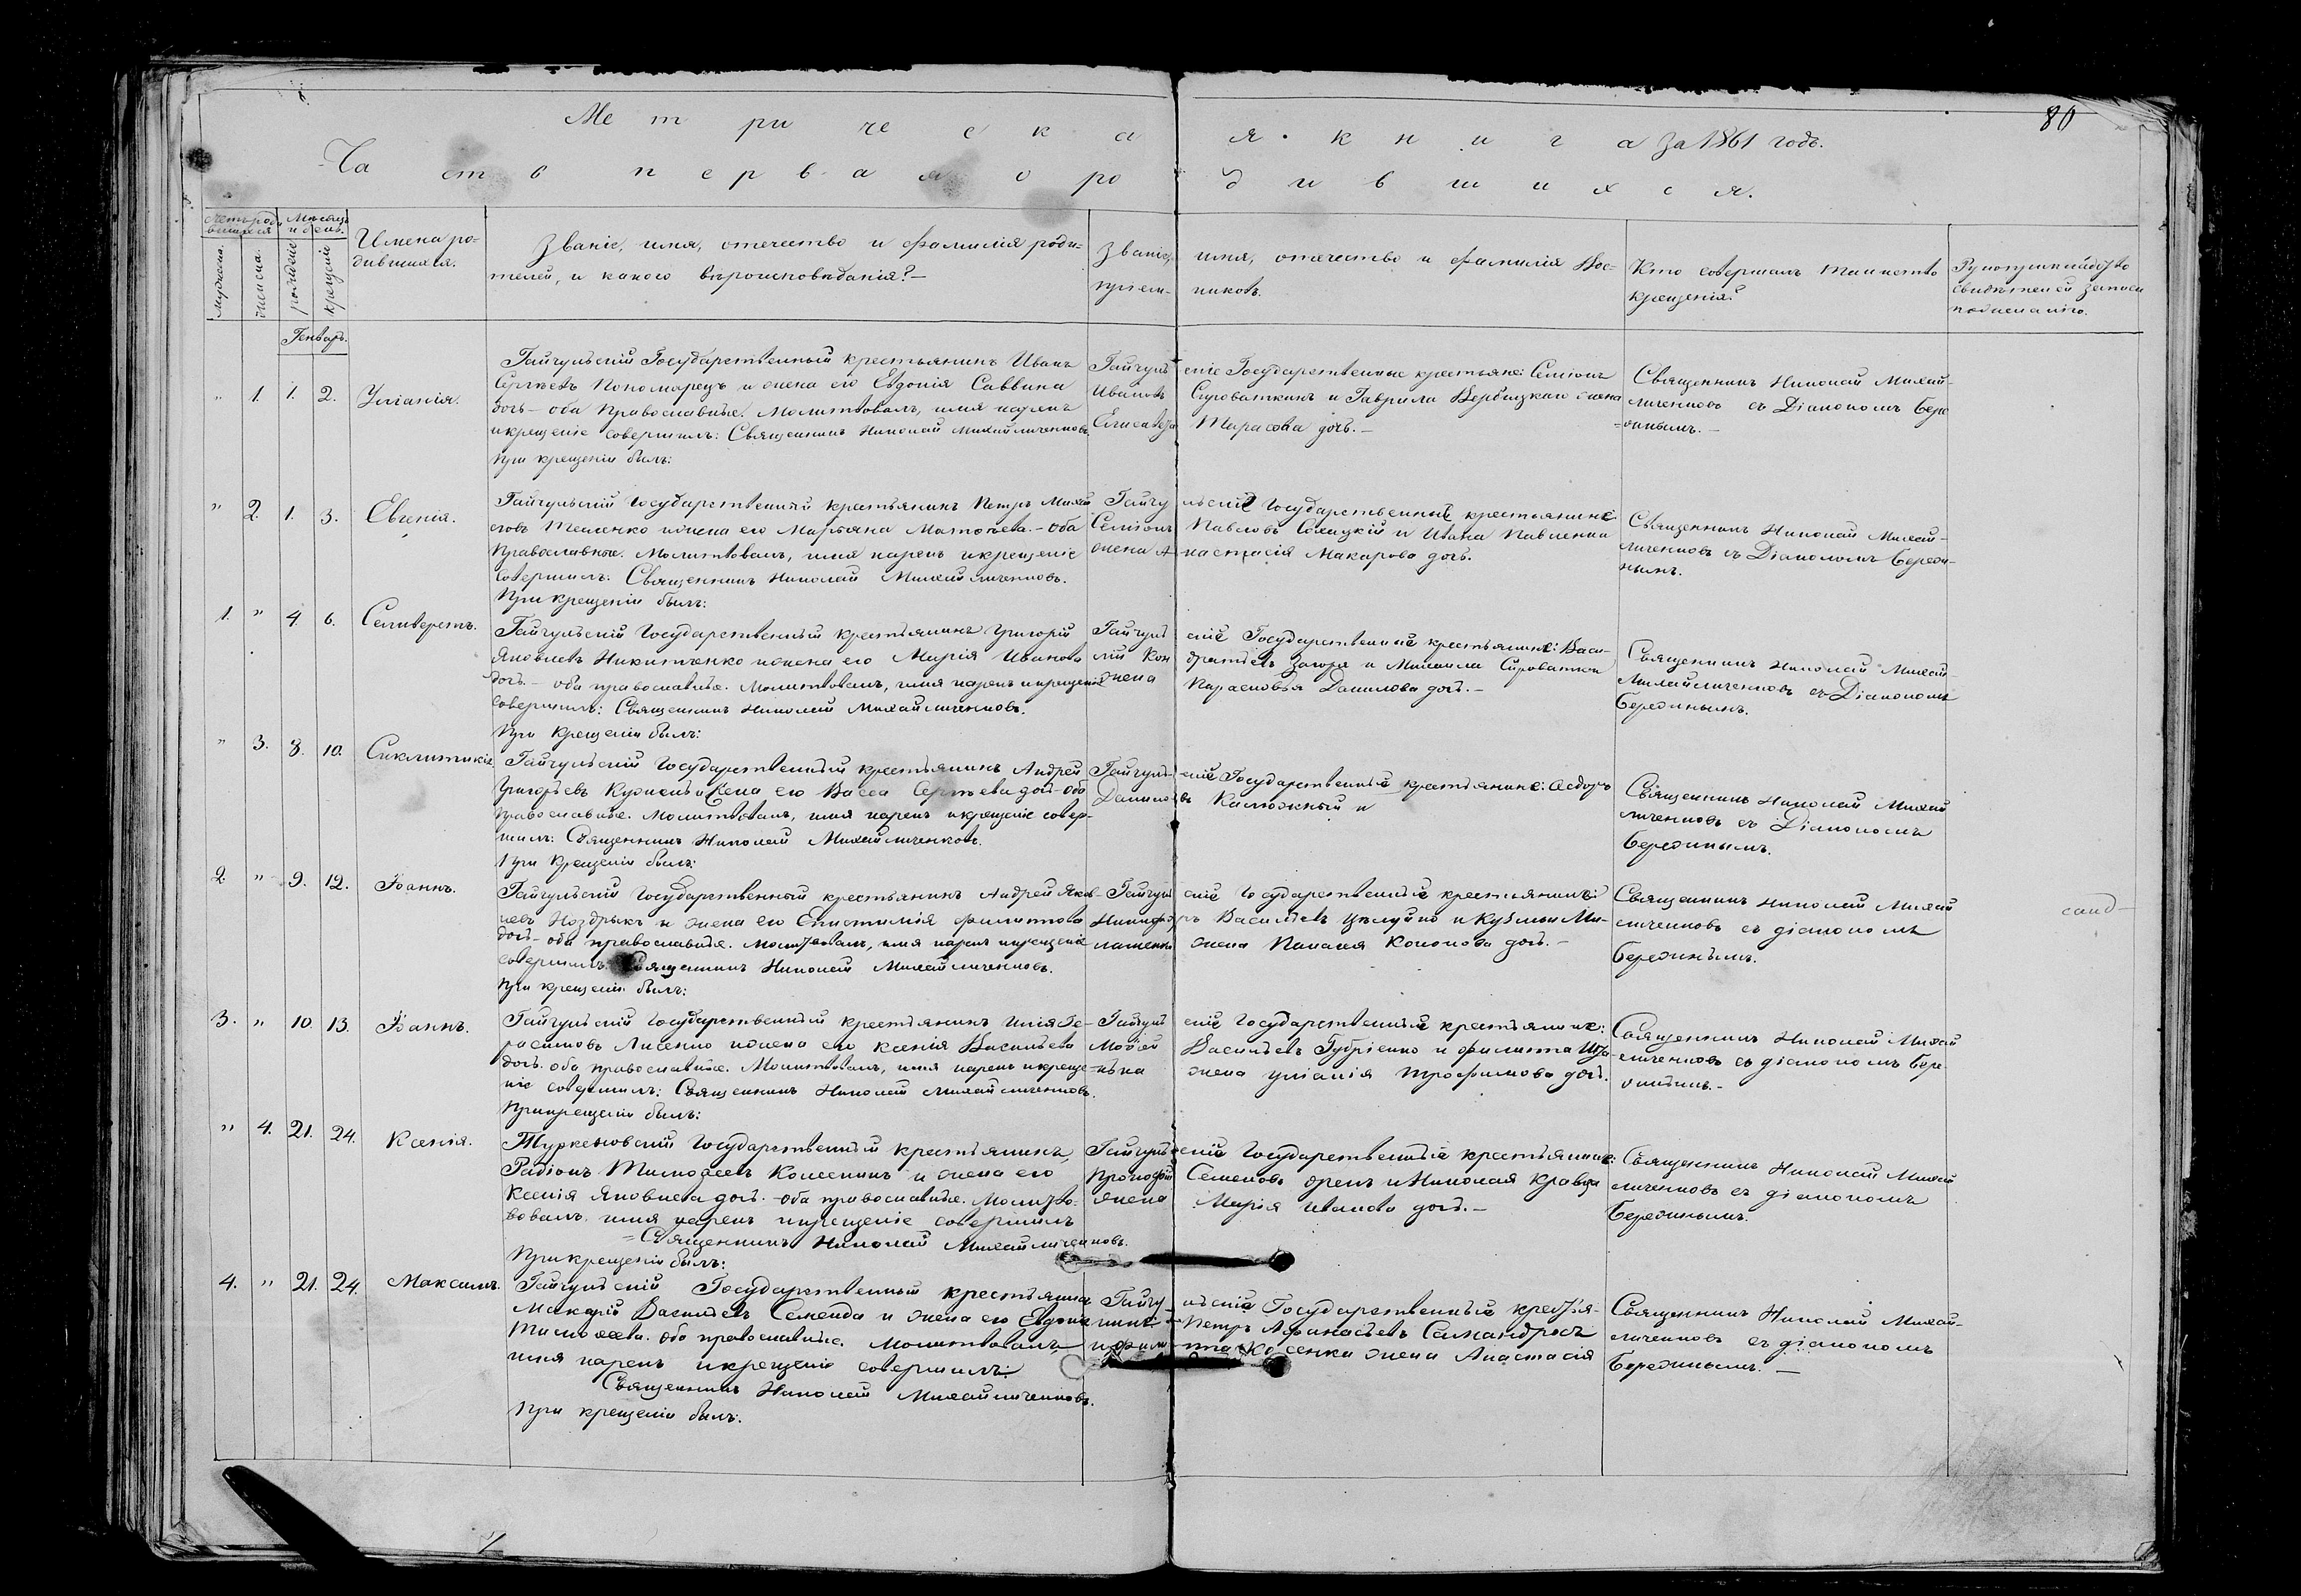 80
Метрическая книга за 1861 годъ.
Часть первая о родившихся.
Мѣсяцъ и день.
Мужеска.
женска.
рожденіе
крещеніе
Имена ро-
дившихся.
Званіе, имя, отечество и фамилія роди-
телей, и какого вѣроисповѣданія?
Званіе, имя, отечество и фамилія Вос-
пріем- никовъ.
Кто совершалъ таинство
крещенія?
Генварь.
" 1. 1. 2. Уліанія.
Гайчульскій Государственный крестьянинъ Иванъ
Сергѣевъ Пономарецъ и жена его Евдокія Саввина
дочь - оба Православные. Молитвовалъ, имя нарекъ
и крещеніе совершилъ: Священникъ Николай Михайличенковъ.
При крещеніи былъ:
Гайчульскіе Государственные крестьяне: Семіонъ
Ивановъ Сироваткинъ и Гаврила Вербицкаго жена
Елисавета Тарасова дочь. -
Священникъ Николай Михай-
личенковъ съ Діакономъ Бере
=жнымъ. -
" 2. 1. 3. Евгенія.
Гайчульскій Государственный крестьянинъ Петръ Михай
ловъ и жена его Марьяна - оба
Православные. Молитвовалъ, имя нарекъ и крещеніе
совершилъ: Священникъ Николай Михайличенковъ.
При крещеніи былъ:
Гайчульскіе Государственные крестьянине
Семіонъ Павловъ и Ивана Павленка
жена Анастасія Макарова дочь.
Священникъ Николай Михай-
личенковъ съ Діакономъ Береж-
нымъ.
1. " 4. 6. Селиверстъ.
Гайчульскій Государственный крестьянинъ Григорій
Яковлевъ Никитченко и жена его Марія Иванова
дочь. - оба православные. Молитвовалъ, имя нарекъ и крещеніе
совершилъ: Священникъ Николай Михайличенковъ.
При крещеніи былъ:
Гайчульскіе Государственные крестьянине: Васи-
лій Кондратьевъ Загора и Михаила Сироватки
жена Парасковья Данилова дочь. -
Священникъ Николай Михай-
Михайличенковъ съ Діакономъ
Бережнымъ.
" 3. 8. 10. Сиклитикія.
Гайчульскій Государственный крестьянинъ Андрей
Григорьевъ и жена его Васса Сергѣева дочь - оба
православные. Молитвовалъ, имя нарекъ и крещеніе совер-
шилъ: Священникъ Николай Михайличенковъ.
При крещеніи былъ:
Гайчульскіе Государственные крестьянине: Ѳедоръ
Даниловъ Калюжный и
Священникъ Николай Михай
личенковъ съ Діакономъ
Бережнымъ.
2. " 9. 12. Іоаннъ.
Гайчульскій Государственный крестьянинъ Андрей Яков-
левъ Ноздрыкъ и жена его Епистимія Филипова
дочь - оба православные. Молитвовалъ, имя нарекъ и крещеніе
совершилъ: Священникъ Николай Михайличенковъ.
При крещеніи былъ:
Гайчульскіе Государственные крестьянинъ:
Никифоръ Васильевъ Цѣлуйко и Кузьмы Ми-
лашенка жена Пелагея Кононова дочь. -
Священникъ Николай Михай
личенковъ съ діакономъ
Бережнымъ.
3. " 10. 13. Іоаннъ.
Гайчульскій Государственный крестьянинъ Илія Ге-
расимовъ Лисенко и жена его Ксенія Васильева
дочь. оба православные. Молитвовалъ, имя нарекъ и креще-
ніе совершилъ: Священникъ Николай Михайличенковъ.
При крещеніи былъ:
Гайчульскіе Государственные крестьянине:
Мойсей Васильевъ Губріенко и Филиппа
жена Уліанія Трофимова дочь.
Священникъ Николай Михай
личенковъ съ діакономъ Бере
жнымъ. -
" 4. 21. 24. Ксенія.
Туркеновскій Государственный крестьянинъ
Радіонъ Тимоѳеевъ Колесникъ и жена его
Ксенія Яковлева дочь. оба православные. Молитво-
вовалъ. имя нарекъ и крещеніе совершилъ
= Священникъ Николай Михайличенковъ.
При крещеніи былъ:
Гайчульскіе Государственные крестьянине:
Прокофій Семеновъ и Николая Кравца
жена Марія Иванова дочь. -
Священникъ Николай Михай
личенковъ съ діакономъ
Бережнымъ.
4. " 21. 24. Максимъ.
Гайчульскій Государственный крестьянинъ
Макарій Васильевъ Семенда и жена его Евдокія
Тимоѳеева. оба православные. Молитвовалъ
имя нарекъ и крещеніе совершилъ:
Священникъ Николай Михайличенковъ.
При крещеніи былъ:
Гайчульскіе Государственные крестья-
нине: Петръ Аѳанасьевъ
и жена Анастасія
Священникъ Николай Михай-
личенковъ съ діакономъ
Бережнымъ. -